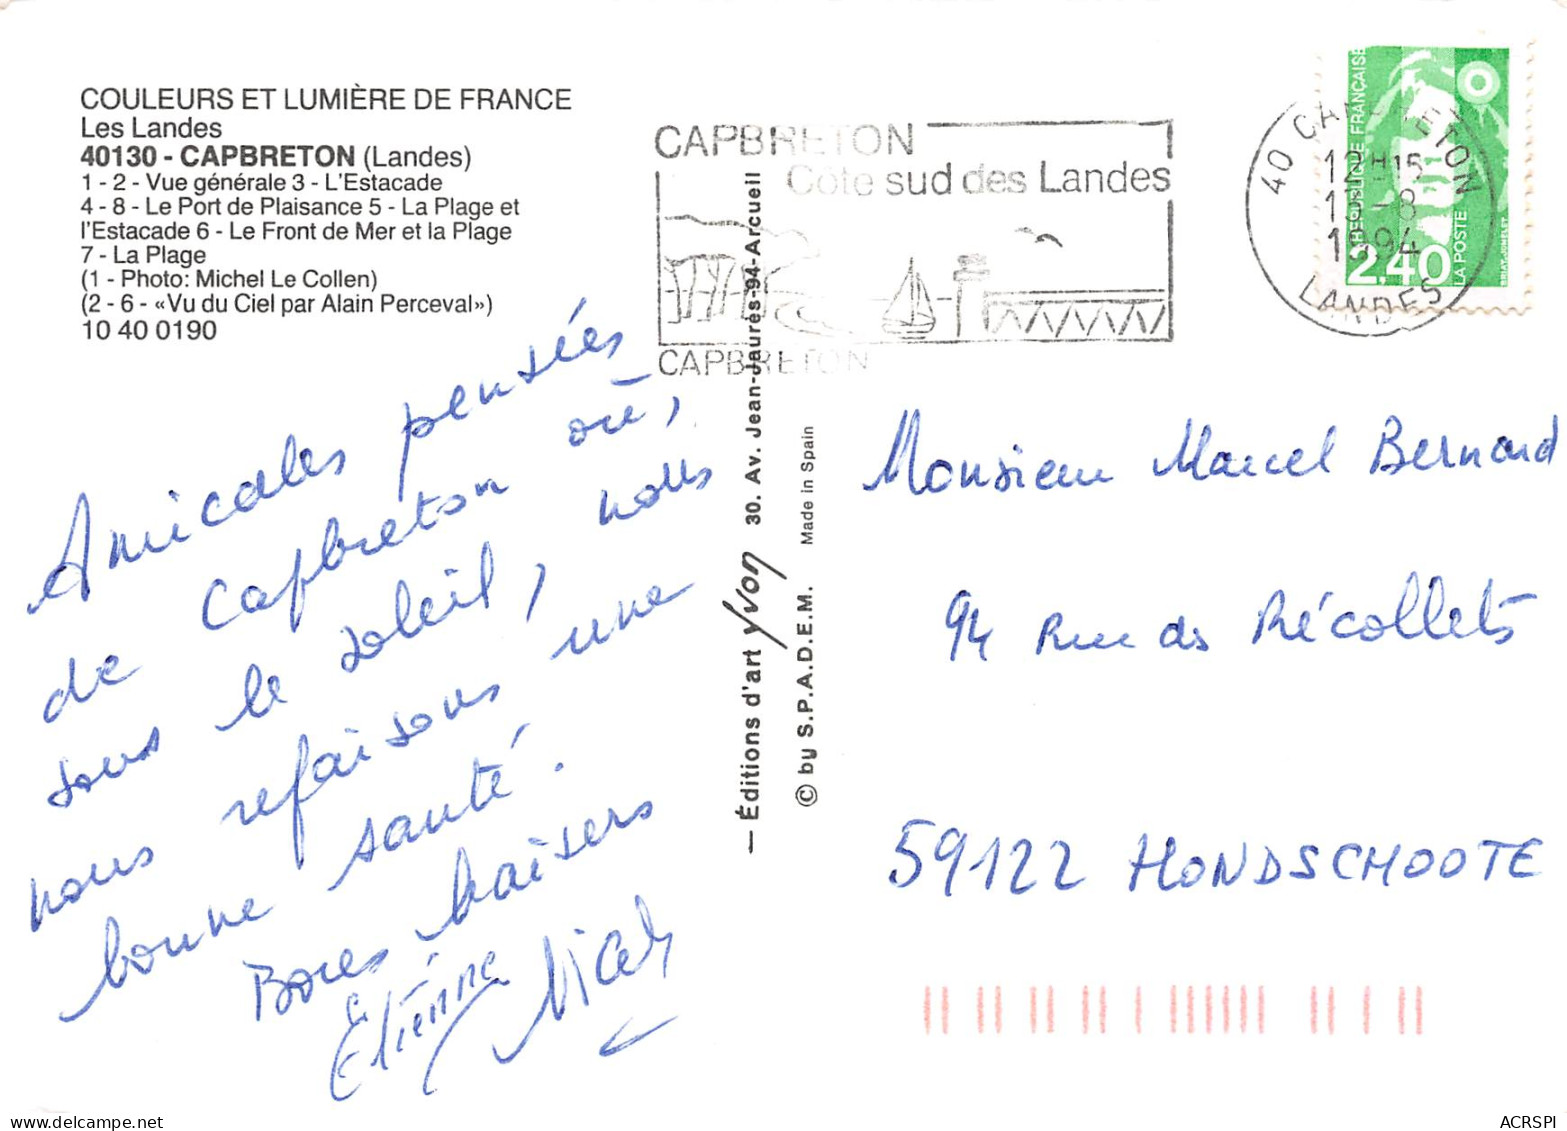 COULEURS ET LUMIÈRE DE FRANCE
Les Landes
40130 - CAPBRETON (Landes)
1 - 2 - Vue générale 3 - L'Estacade
4 - 8 - Le Port de Plaisance 5 - La Plage et
l'Estacade 6 - Le Front de Mer et la Plage
7 - La Plage
(1 - Photo: Michel Le Collen)
(2 - 6 - «Vu du Ciel par Alain Perceval»)
10 40 0190
Amicales pensées
de Capbreton où,
sous le soleil, nous
nous refaisons une
bonne santé.
baisers
Etienne
— Éditions d'art yvon 30. Av. Jean-Jaurès-94-Arcueil
© by S.P.A.D.E.M. Made in Spain
CAPBRETON
Côte sud des Landes
CAPBRETON
40 CAPBRETON
12H15
-8
1994
LANDES
RÉPUBLIQUE FRANÇAISE
2,40
LA POSTE
BRIAT-JUMELET
Monsieur Marcel Bernard
94 Rue des Récollets
59122 HONDSCHOOTE
ACRSPI